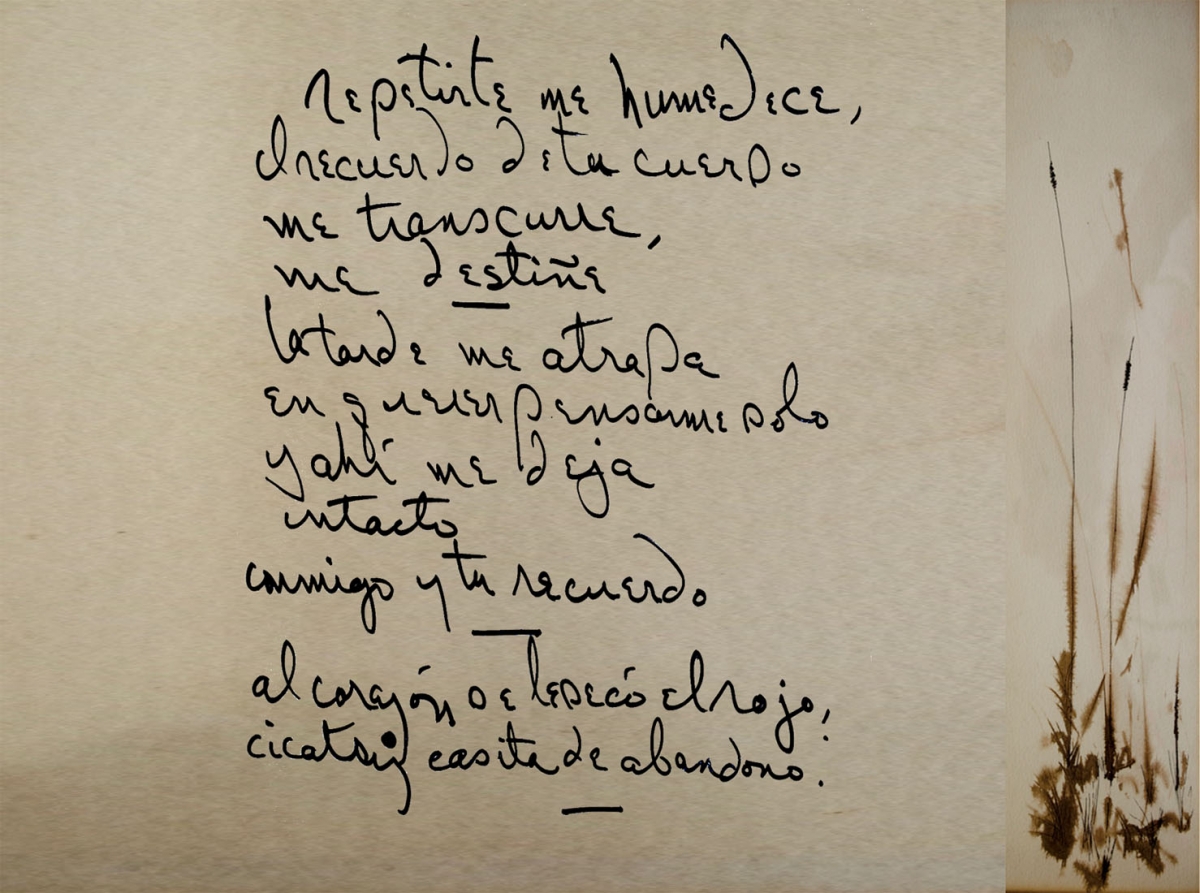 repetirte me humedece,
el recuerdo de tu cuerpo
me transcurre,
me destiñe
la tarde me atrapa
en querer pensarme solo
y ahí me deja
intacto
conmigo y tu recuerdo
al corazón se le secó el rojo,
cicatriz casita de abandono.